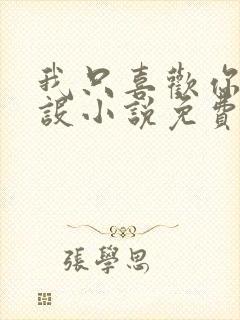 我只喜歡你
設小說免費
張學思